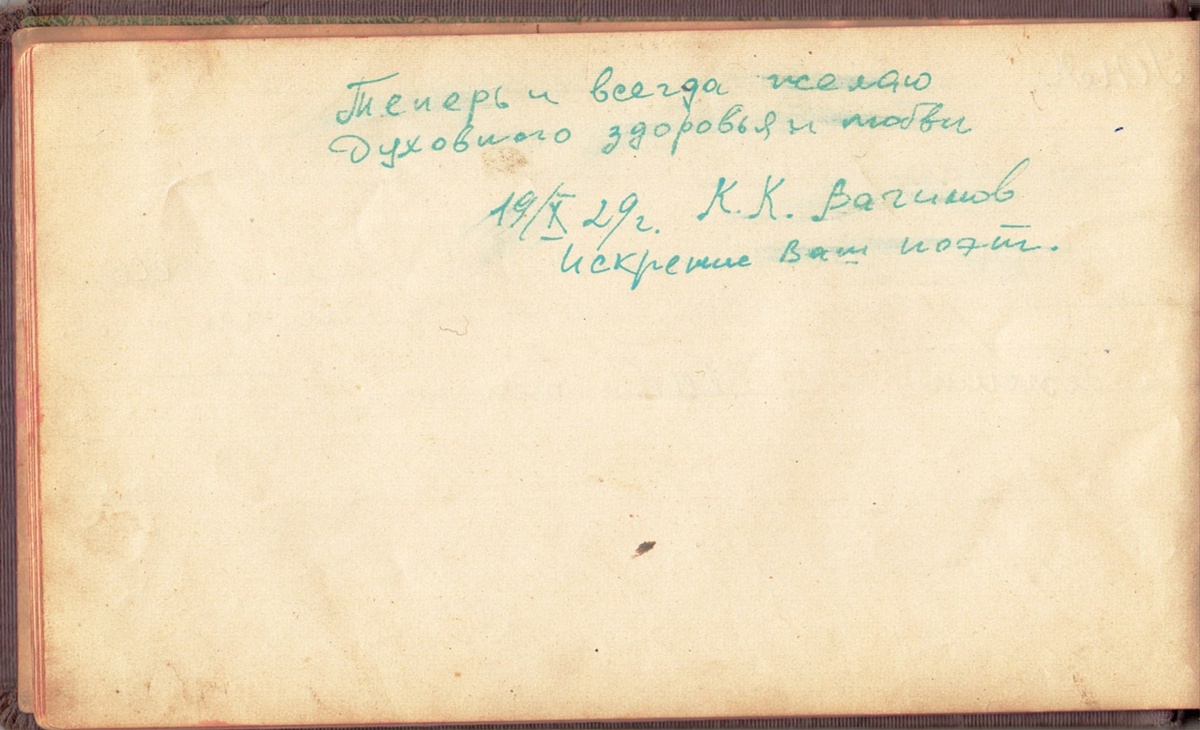 Теперь и всегда желаю
Духовного здоровья и любви
19/X 29г. К. К. Вагинов
Искренне Ваш поэт.